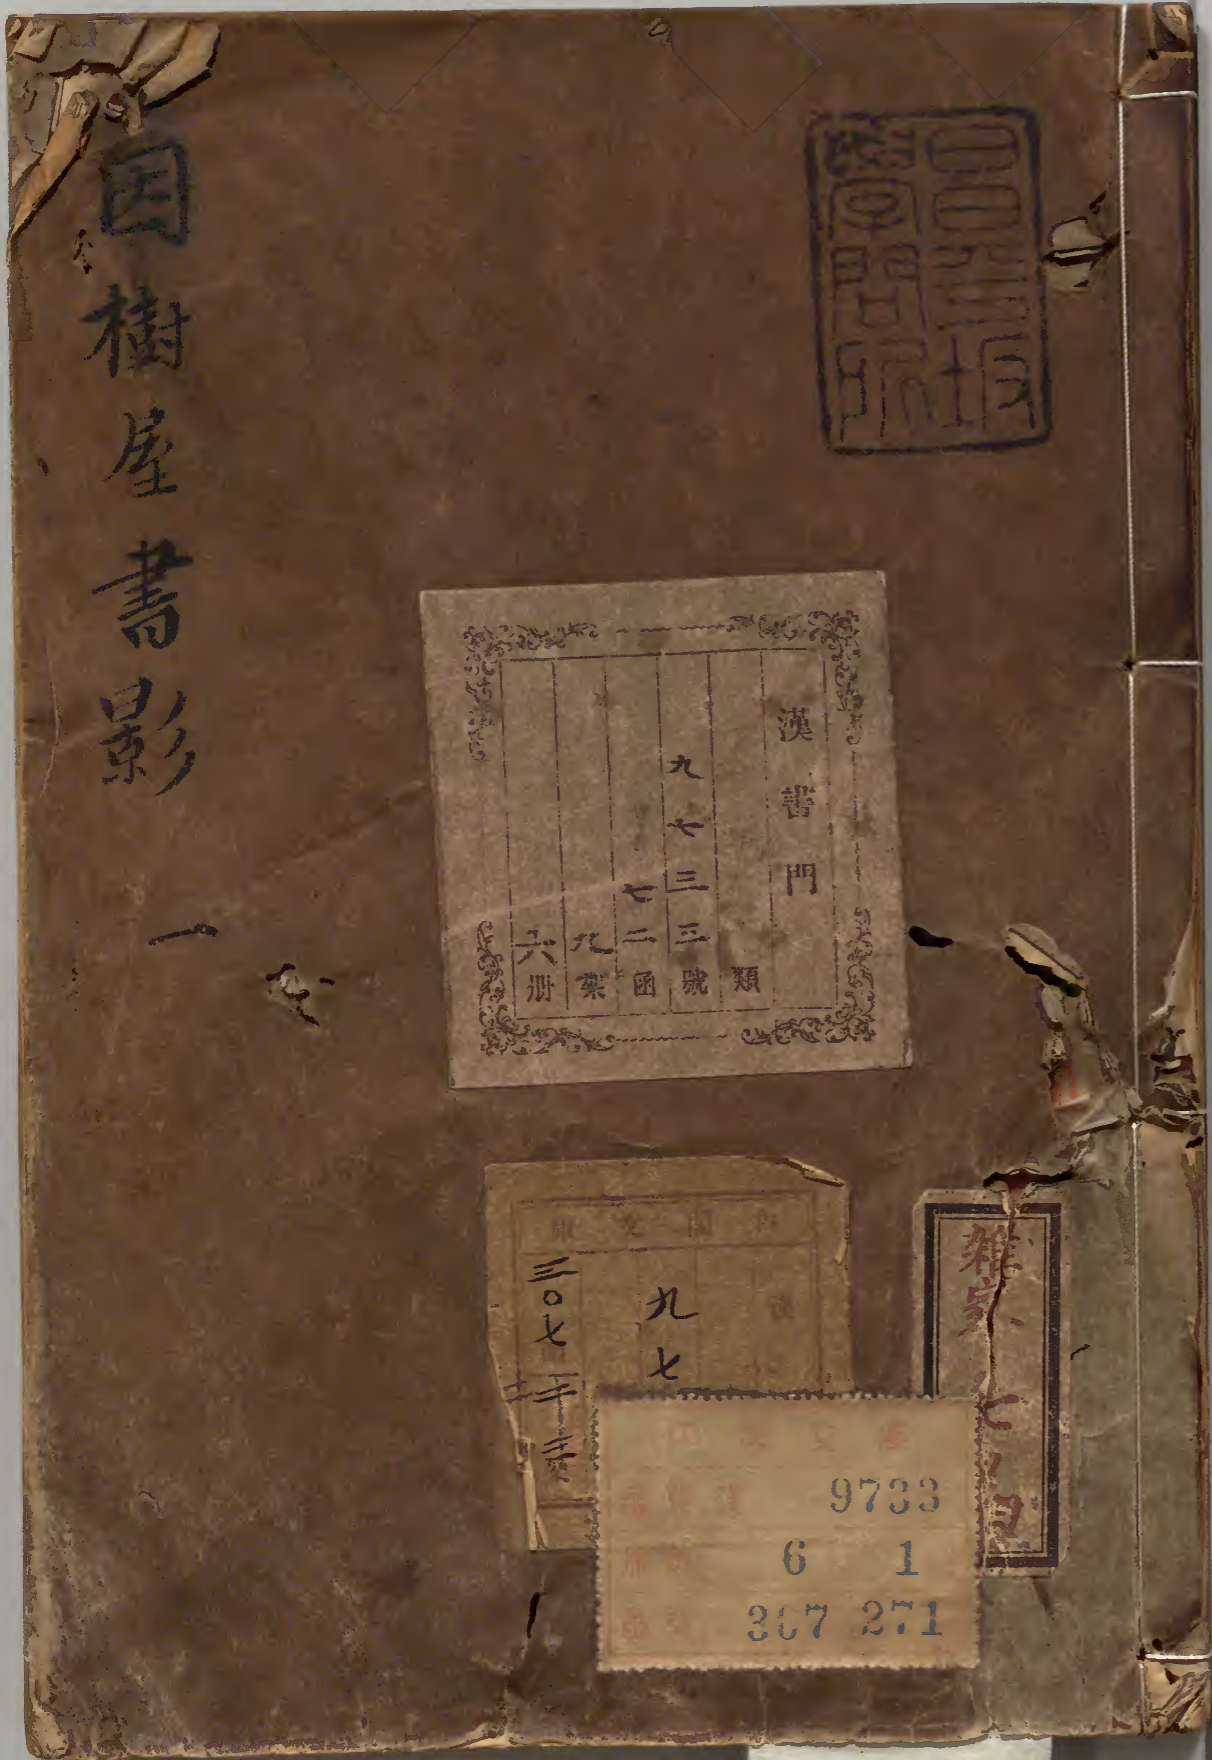 昌平坂
學問所
因樹屋書影
一
漢書門
類
九七三三號
七二函
九架
六册
九七
三〇七
雑家
七
9733
6 1
307 271